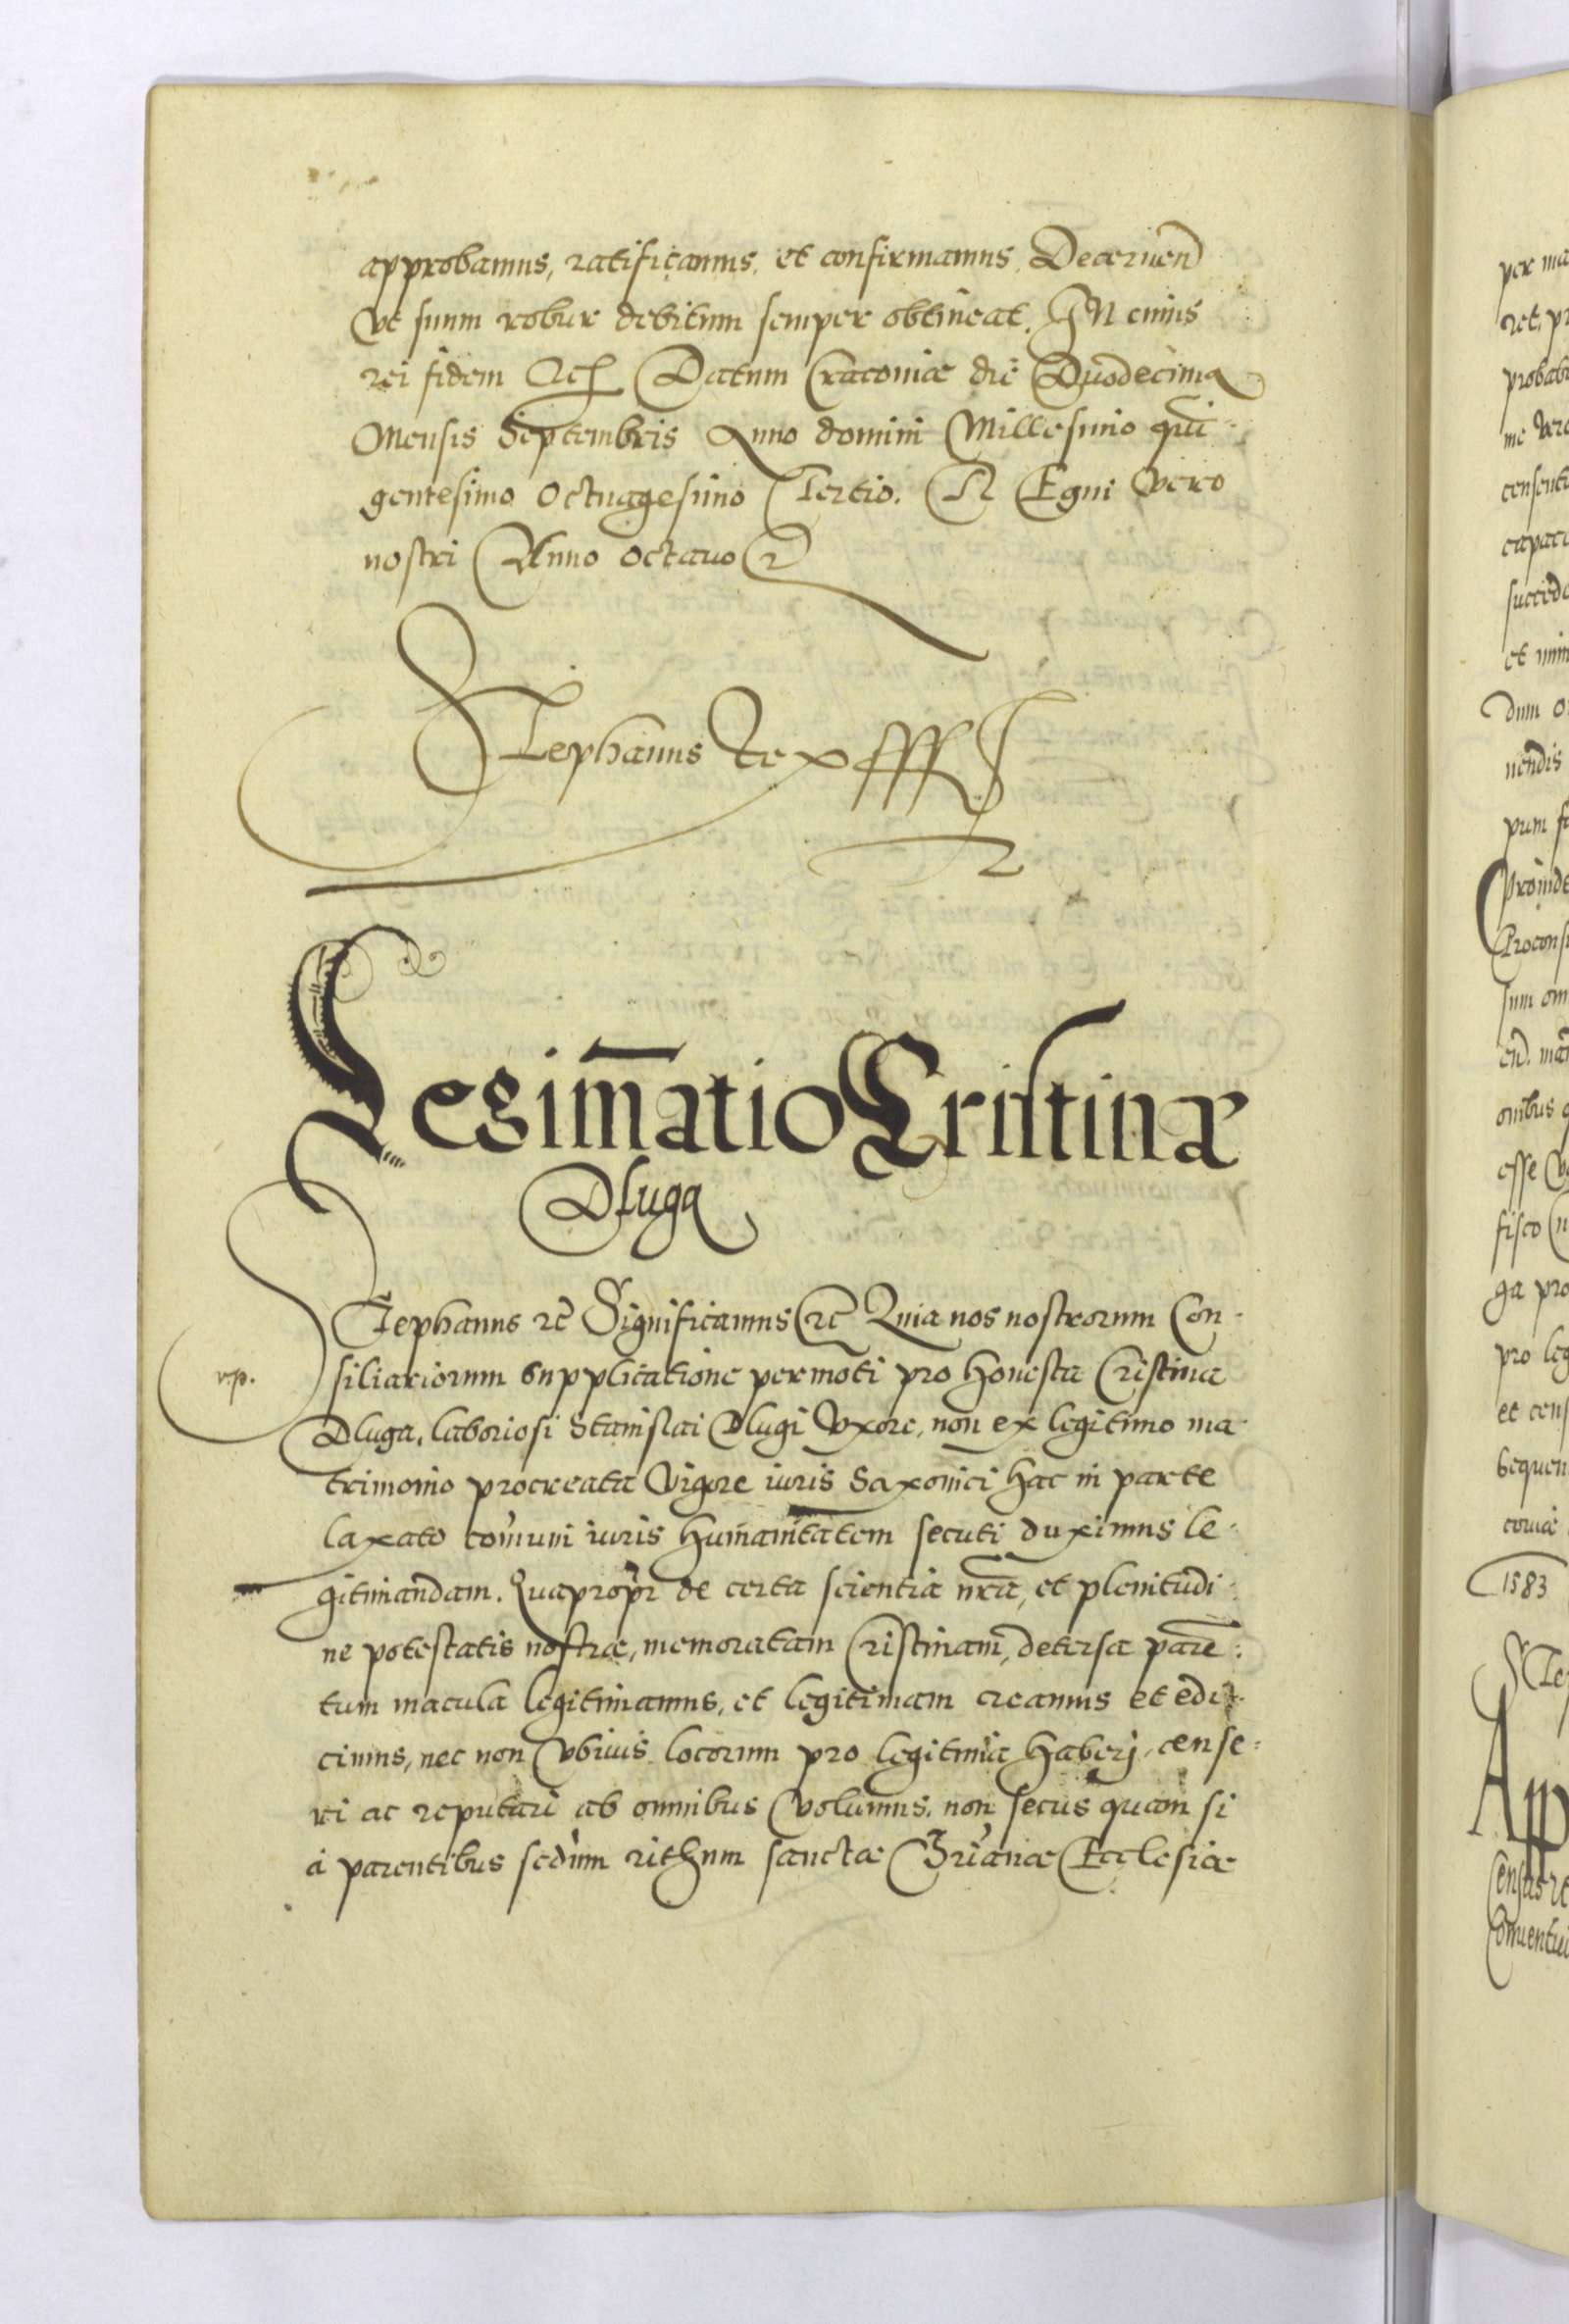 approbamus, ratificamus, et confirmamus. Decernend̄
Vt suum robur debitum semper obtineat. IN cuius
rei fidem etc̄ Datum Cracoviæ die Duodecima
Mensis Septembris Anno domini Millesimo quī-
gentesimo Octuagesimo Tertio. REgni Vero
nostri Anno octavo
Stephanus Rex ssst
Legim̄atio Cristinæ
Dluga
Stephanus etc̄ Significamus etc̄ Quia nos nostrorum Con-
siliariorum supplicatione permoti pro Honesta Cristina
v.p.
Dluga, laboriosi Stanislai Dlugi Vxore, non ex legitimo ma-
trimonio procreata Vigore iuris Saxonici hac in parte
laxato com̄uni iuris humanitatem secuti duximus le-
gitimandam. Quaprop̄r de certa scientia nr̄a, et plenitudi-
ne potestatis nostræ, memoratam Cristinam, detersa parē-
tum macula legitimamus, et legitimam creamus et edi-
cimus, nec non Vbivis locorum pro legitima haberj, cense-
ri ac reputari ab omnibus Volumus, non secus quam si
à parentibus scd̄um rithum sanctæ Chr̄ianæ Ecclesiæ
per ma
ret, pr
probab
me Vero
censent
capac
succede
et nim
dum o
nendis
pum f
Proinde
Proconsu
sum om
end. mā
onibus q
esse V
fisco n
ga pro
pro leg
et cens
sequen
coviæ
1583
Ste
App
Census
Conventu